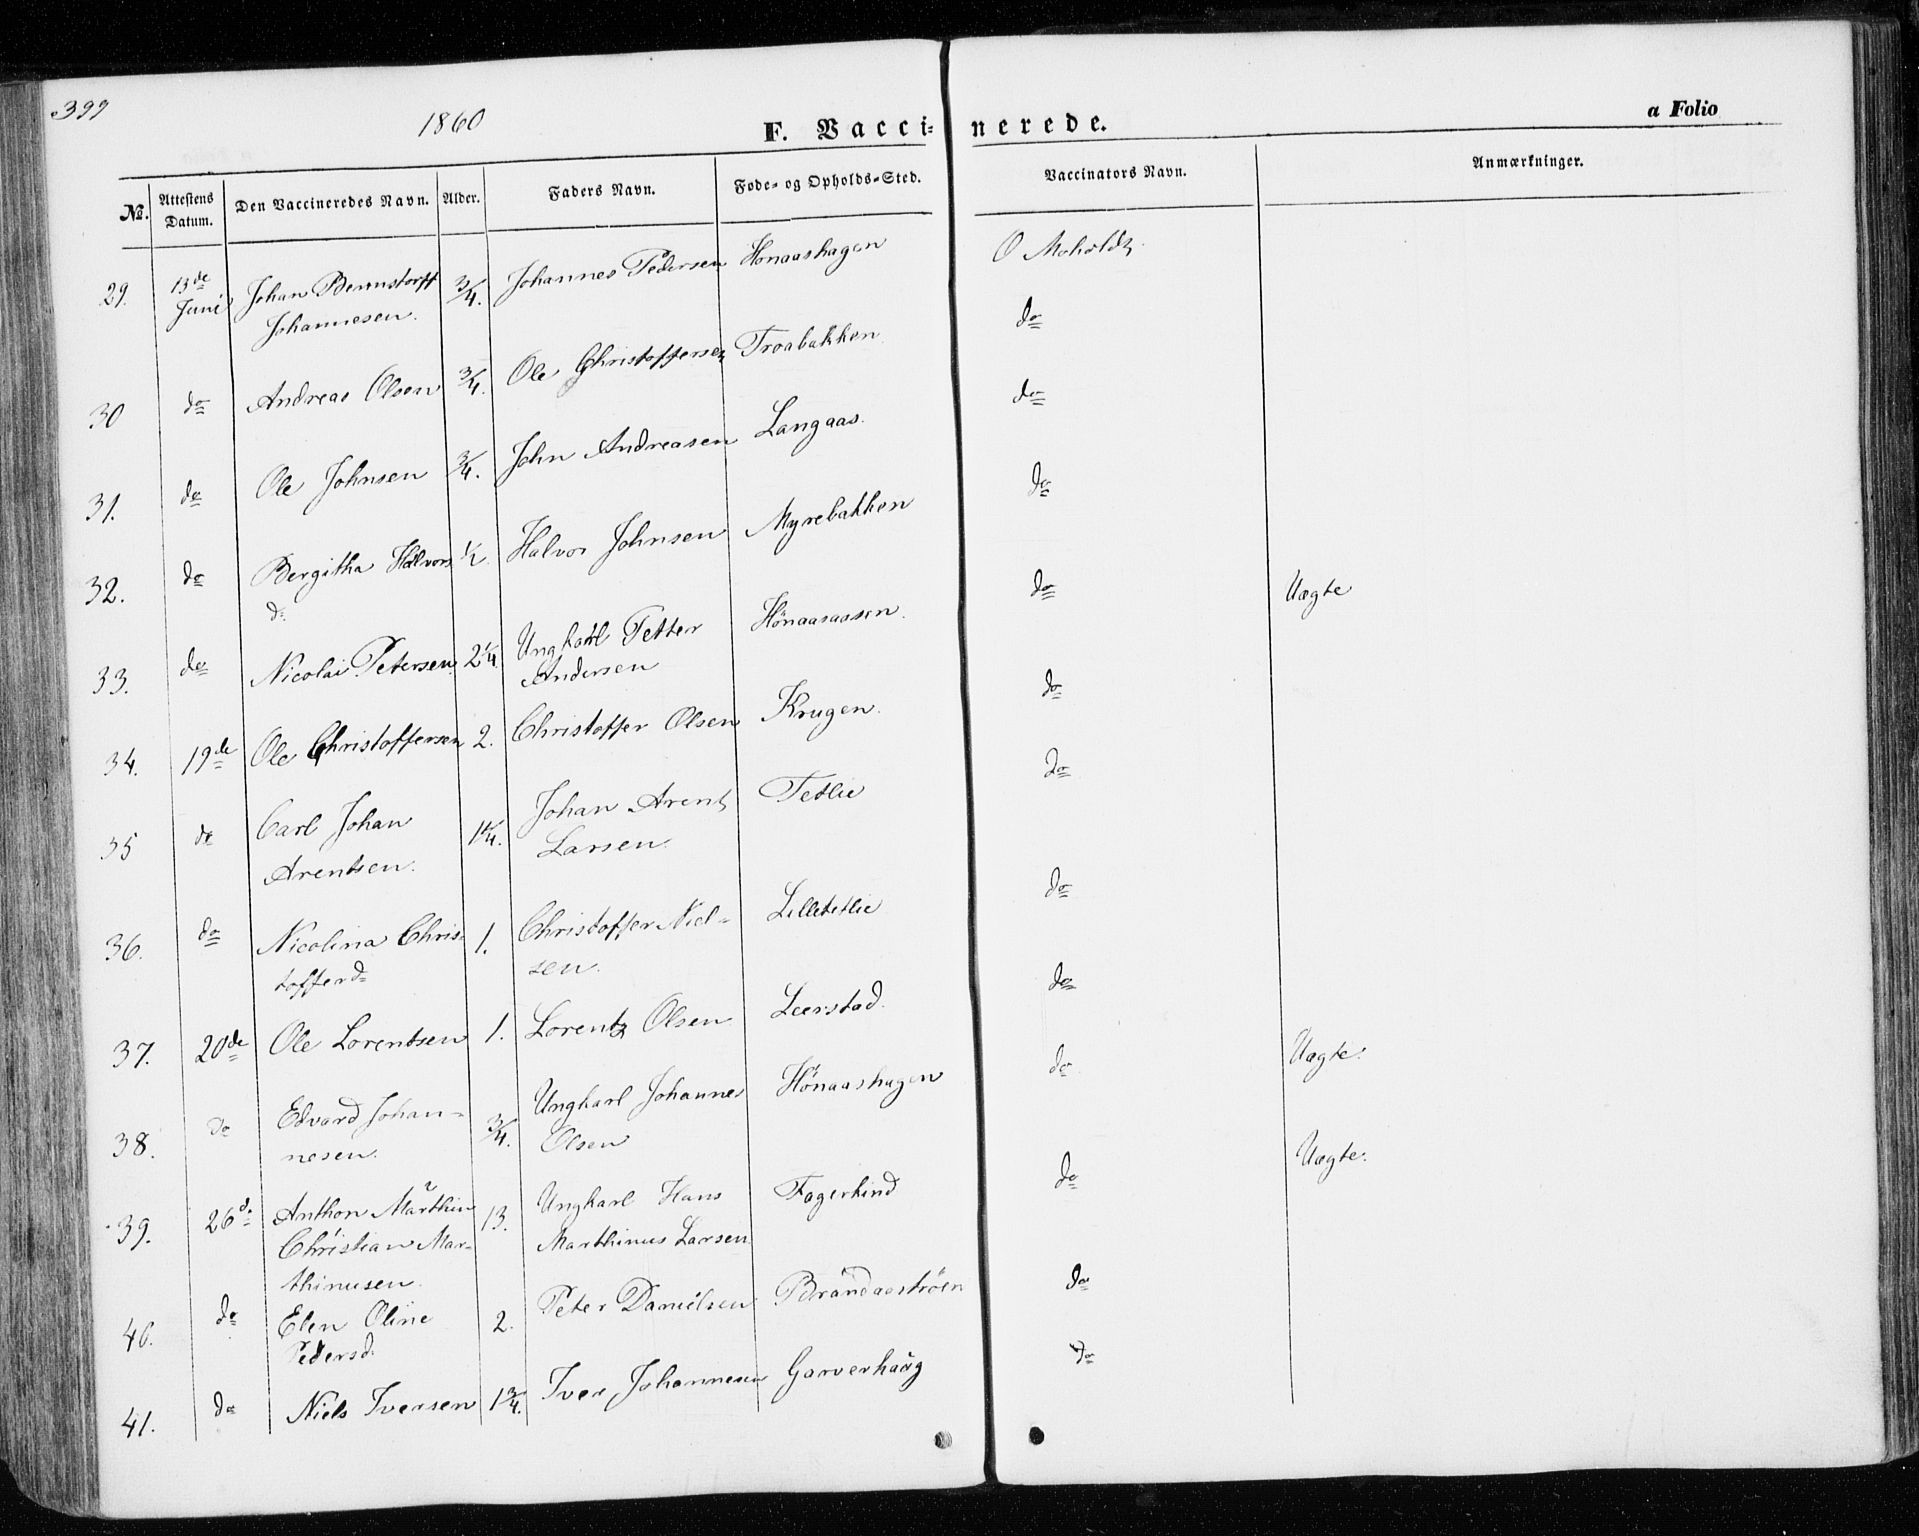 399
1860
F. Vaccinerede.
a Folio
No. Attestens Datum. Den Vaccineredes Navn. Alder. Faders Navn. Føde- og Opholds-Sted. Vaccinators Navn. Anmærkninger.
29. 13de Juni Johan Bernstorff Johannesen. 3/4. Johannes Pedersen Hönaashagen O Moholdt
30 do Andreas Olsen 3/4. Ole Christoffersen Troabakken do
31. do Ole Johnsen 3/4. John Andreasen Langaas. do
32. do Bergitha Halvors d. 1/2. Halvor Johnsen Myrebakken do
33. do Nicolai Petersen 2 1/4. Ungkarl Petter Andersen Hönaasaasen. do Uægte
34. 19de Ole Christoffersen 2. Christoffer Olsen Krugen. do
35 do Carl Johan Arentsen. 1 1/4. Johan Arent Larsen Tetlie do
36. do Nicolina Chris- tofferd. 1. Christoffer Niel- sen. Lilletetlie do
37. 20de Ole Lorentsen 1. Lorentz Olsen Leerstad. do
38. do Edvard Johan- nesen. 3/4. Ungkarl Johannes Olsen Hönaashagen do Uægte.
39. 26de Anthon Marthin Christian Mar- thinusen. 13. Ungkarl Hans Marthinus Larsen Fagerhind do Uægte.
40. do Elen Oline Pedersd. 2. Peter Danielsen Brandaaströen do
41. do Niels Iversen 1 3/4. Iver Johannesen Garverhaug do